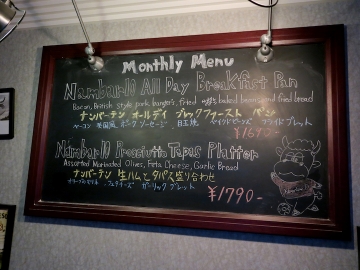 Monthly Menu
Number 10 All Day Breakfast Pan
Bacon, British style pork bangers, fried eggs, baked beans and fried bread
ナンバーテン オールデイ ブレックファースト パン
ベーコン 英国風 ポーク ソーセージ 目玉焼 ベイクドビーンズ フライドブレット
¥1690-
Number 10 Prosciutto Tapas Platter
Assorted Marinated Olives, Feta Cheese, Garlic Bread
ナンバーテン 生ハムとタパス盛り合わせ
フェタチーズ ガーリック ブレット
¥1790-